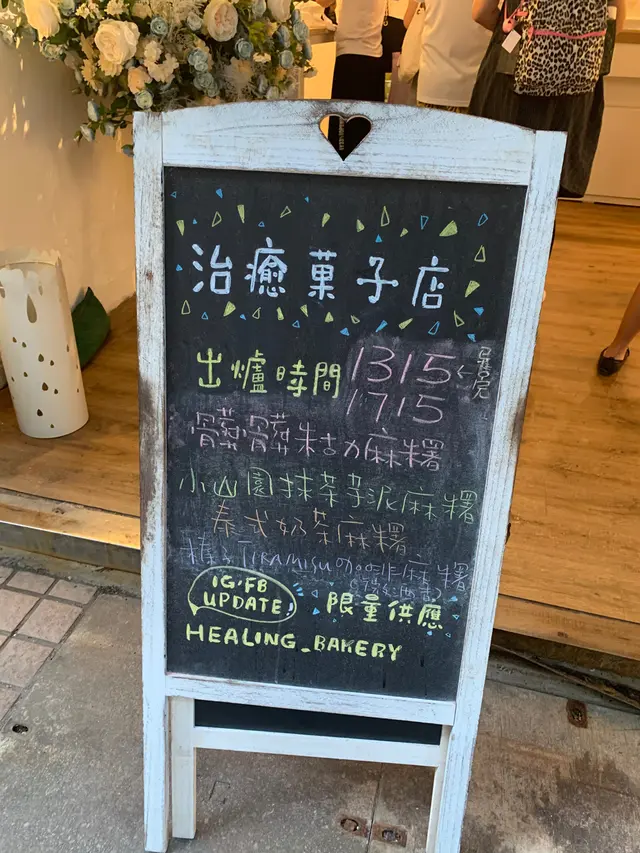 治癒菓子店
出爐時間 1315 ←量完
1715
髒髒朱古力麻糬
小山園抹茶芋泥麻糬
泰式奶茶麻糬
榛子TIRAMISU咖啡麻糬
IG/FB
UPDATE!
限量供應
HEALING_BAKERY